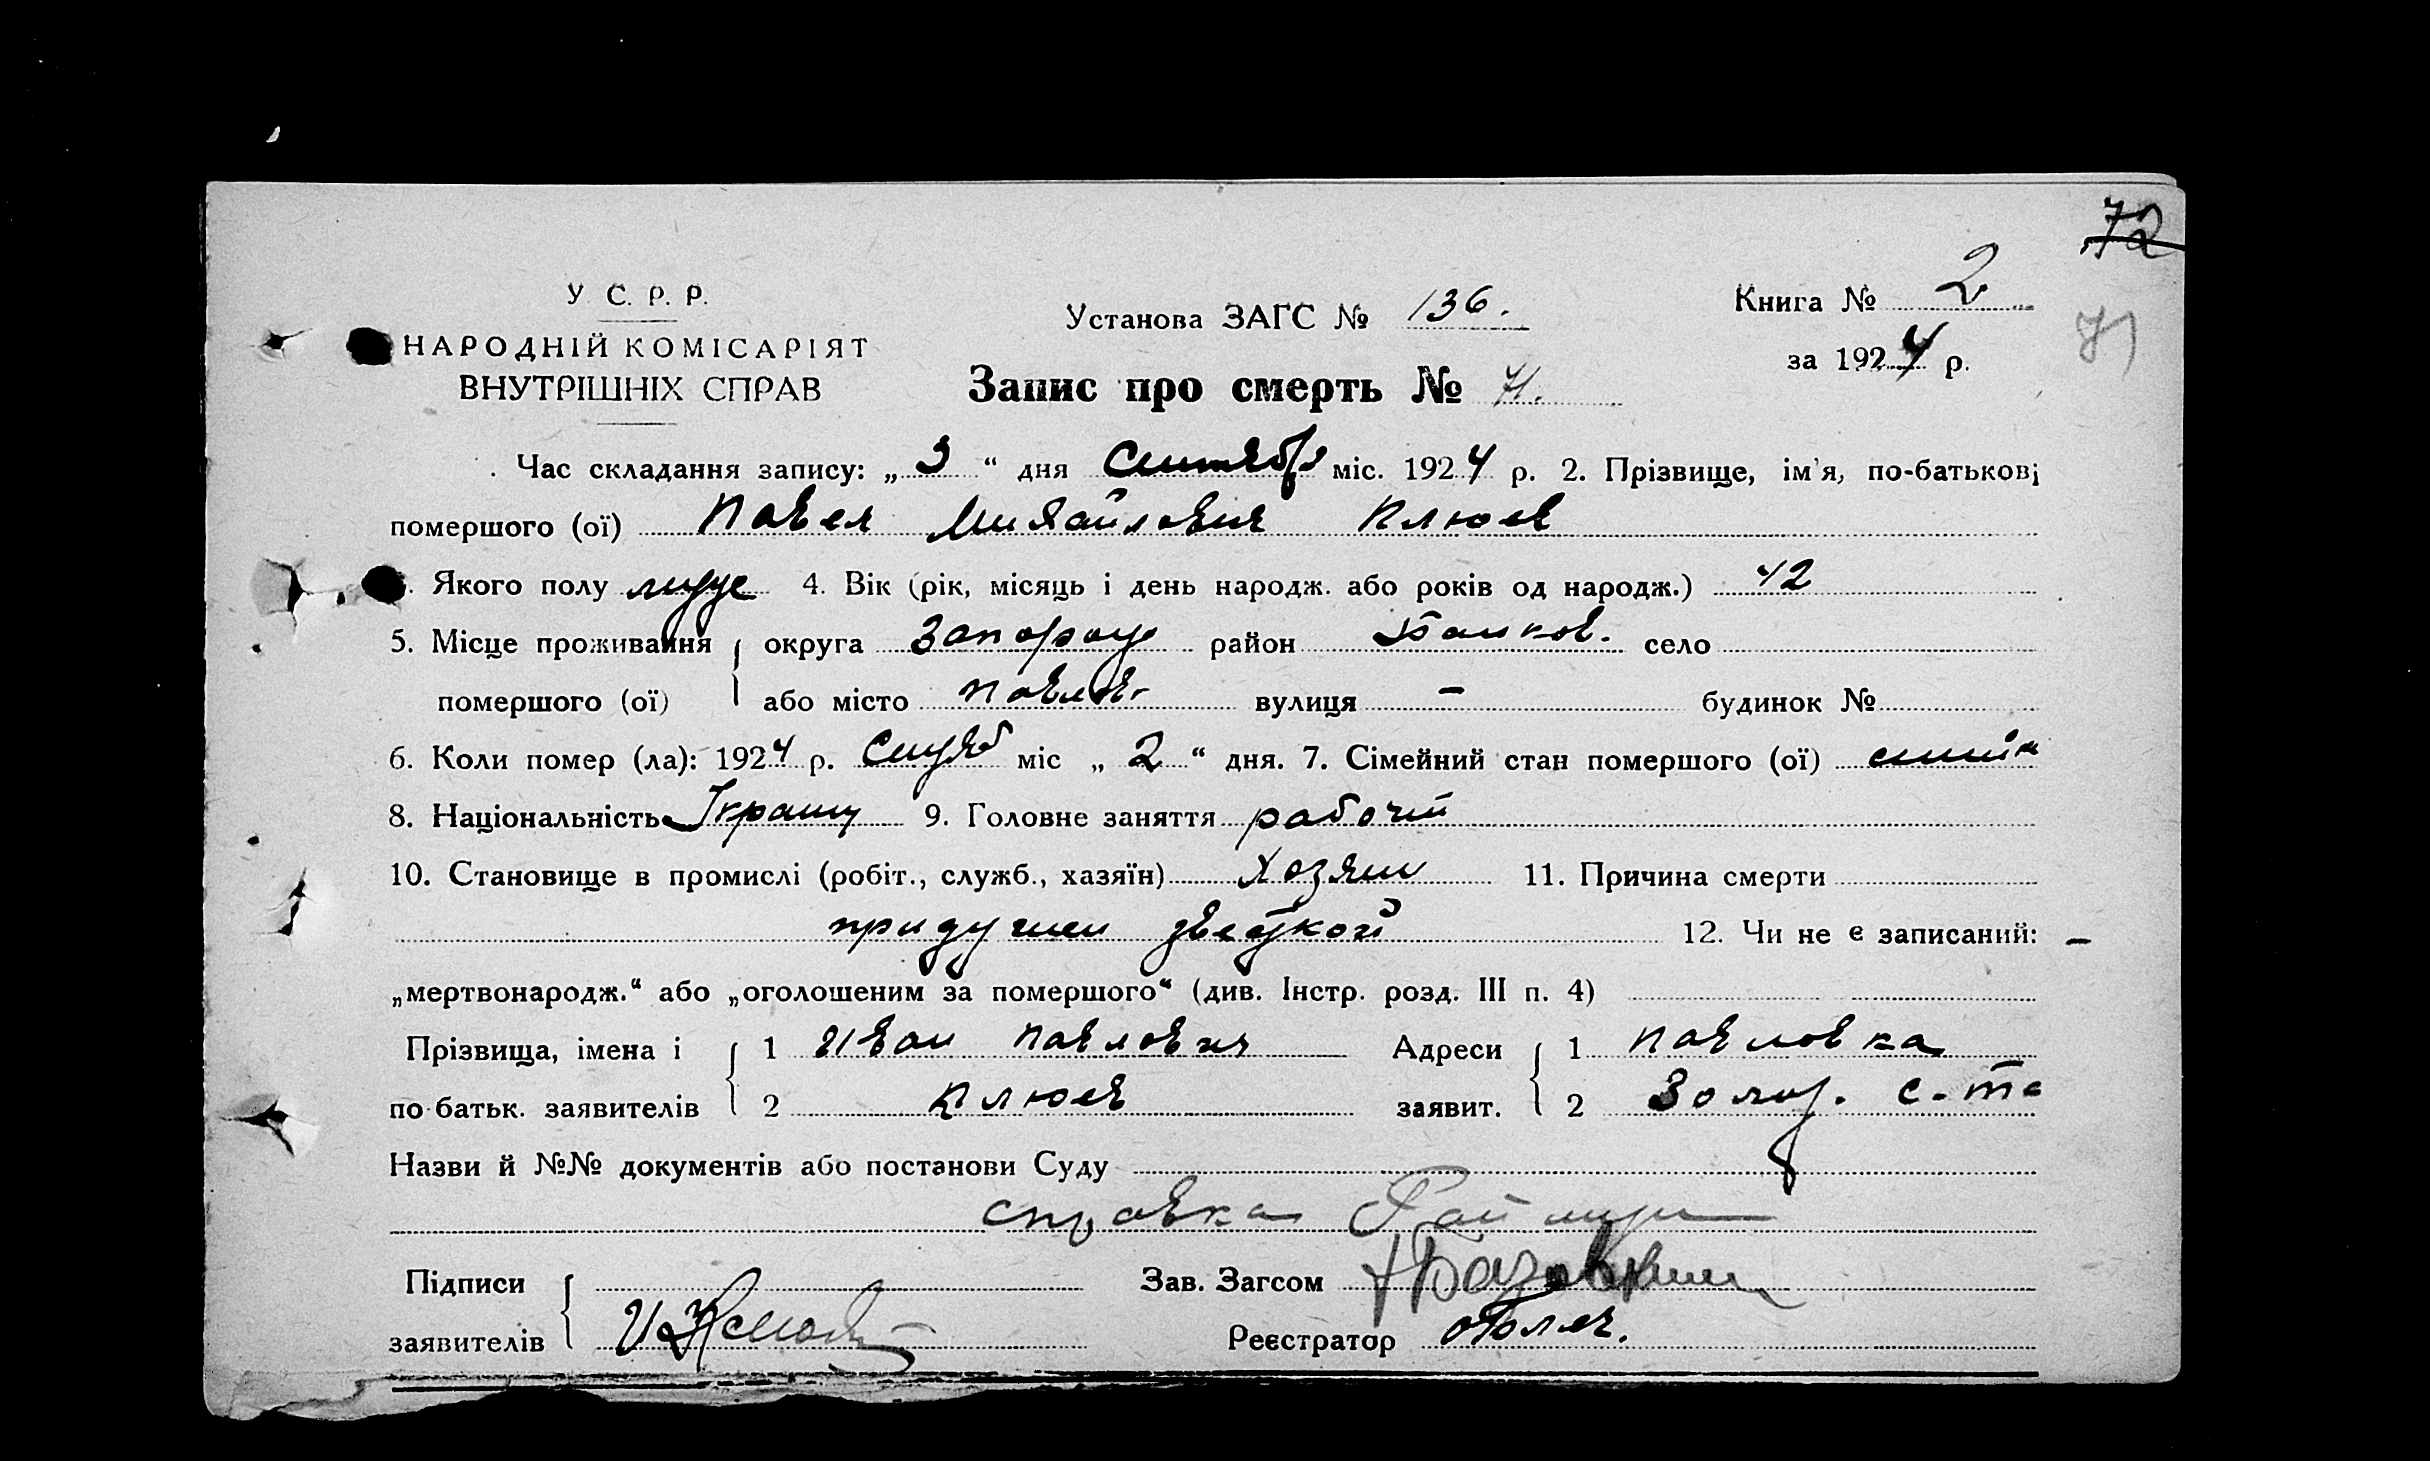 72
У. С. Р. Р.
НАРОДНІЙ КОМІСАРІЯТ
ВНУТРІШНІХ СПРАВ
Установа ЗАГС № 136.
Книга № 2
за 1924 р.
71
Запис про смерть № 71.
Час складання запису: „3“ дня Сентября міс. 1924 р. 2. Прізвище, ім'я, по-батькові
помершого (ої) Павел Михайлович Клюев
Якого полу муж 4. Вік (рік, місяць і день народж. або років од народж.) 42
5. Місце проживання округа Запорож район село
помершого (ої) або місто Павлов- вулиця – будинок №
6. Коли помер (ла): 1924 р. міс „2“ дня. 7. Сімейний стан помершого (ої)
8. Національність 9. Головне заняття рабочий
10. Становище в промислі (робіт., служб., хазяїн) Хозяин 11. Причина смерти
придушен 12. Чи не є записаний: –
„мертвонародж.“ або „оголошеним за помершого“ (див. Інстр. розд. III п. 4)
Прізвища, імена і 1 Иван Павлович Адреси 1 Павловка
по-батьк. заявителів 2 Клюев заявит. 2 с-та
Назви й №№ документів або постанови Суду
справка
Підписи Зав. Загсом
заявителів Реєстратор